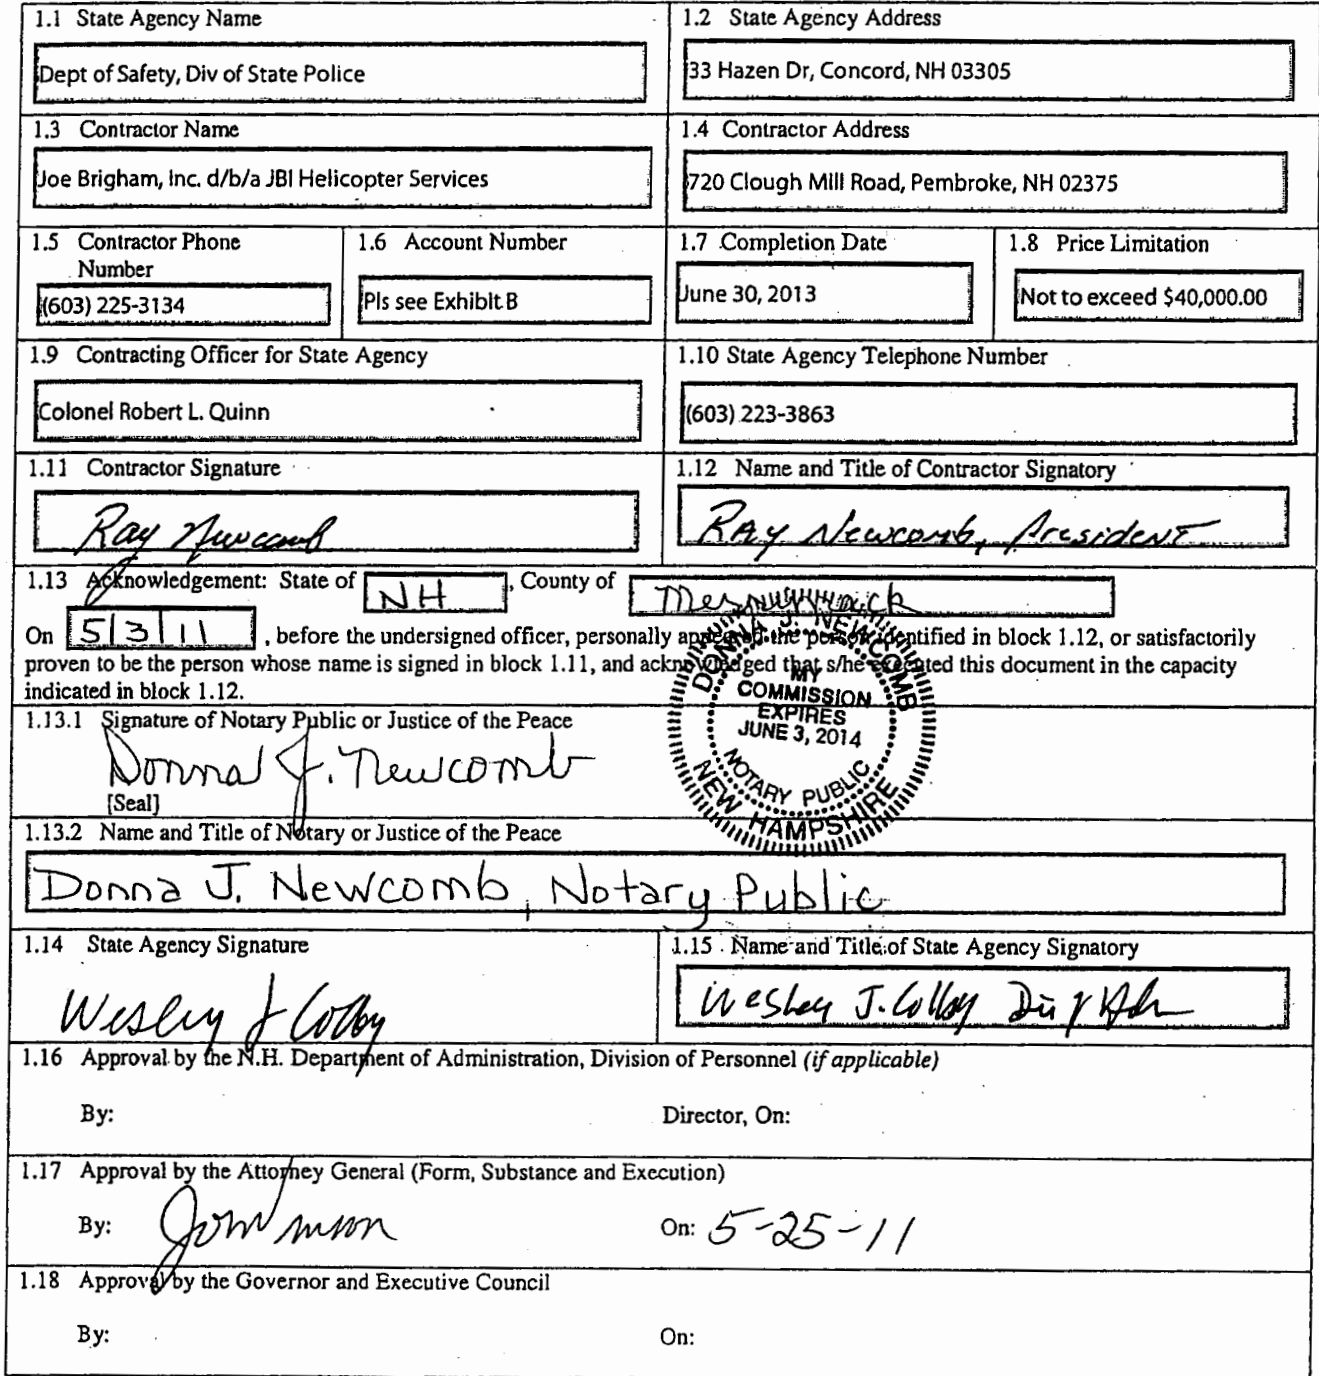 1.1 State Agency Name
Dept of Safety, Div of State Police
1.2 State Agency Address
33 Hazen Dr, Concord, NH 03305
1.3 Contractor Name
Joe Brigham, Inc. d/b/a JBI Helicopter Services
1.4 Contractor Address
720 Clough Mill Road, Pembroke, NH 02375
1.5 Contractor Phone
Number
(603) 225-3134
1.6 Account Number
Pls see Exhibit B
1.7 Completion Date
June 30, 2013
1.8 Price Limitation
Not to exceed $40,000.00
1.9 Contracting Officer for State Agency
Colonel Robert L. Quinn
1.10 State Agency Telephone Number
(603) 223-3863
1.11 Contractor Signature
Ray Newcomb
1.12 Name and Title of Contractor Signatory
Ray Newcomb, President
1.13 Acknowledgement: State of NH, County of Merrimack
On 5/3/11, before the undersigned officer, personally appeared the person identified in block 1.12, or satisfactorily
proven to be the person whose name is signed in block 1.11, and acknowledged that s/he executed this document in the capacity
indicated in block 1.12.
DONNA J. NEWCOMB
MY
COMMISSION
EXPIRES
JUNE 3, 2014
NOTARY PUBLIC
NEW HAMPSHIRE
1.13.1 Signature of Notary Public or Justice of the Peace
Donna J. Newcomb
[Seal]
1.13.2 Name and Title of Notary or Justice of the Peace
Donna J. Newcomb, Notary Public
1.14 State Agency Signature
Wesley J Colby
1.15 Name and Title of State Agency Signatory
Wesley J. Colby Dir of
1.16 Approval by the N.H. Department of Administration, Division of Personnel (if applicable)
By:
Director, On:
1.17 Approval by the Attorney General (Form, Substance and Execution)
By:
On: 5-25-11
1.18 Approval by the Governor and Executive Council
By:
On: